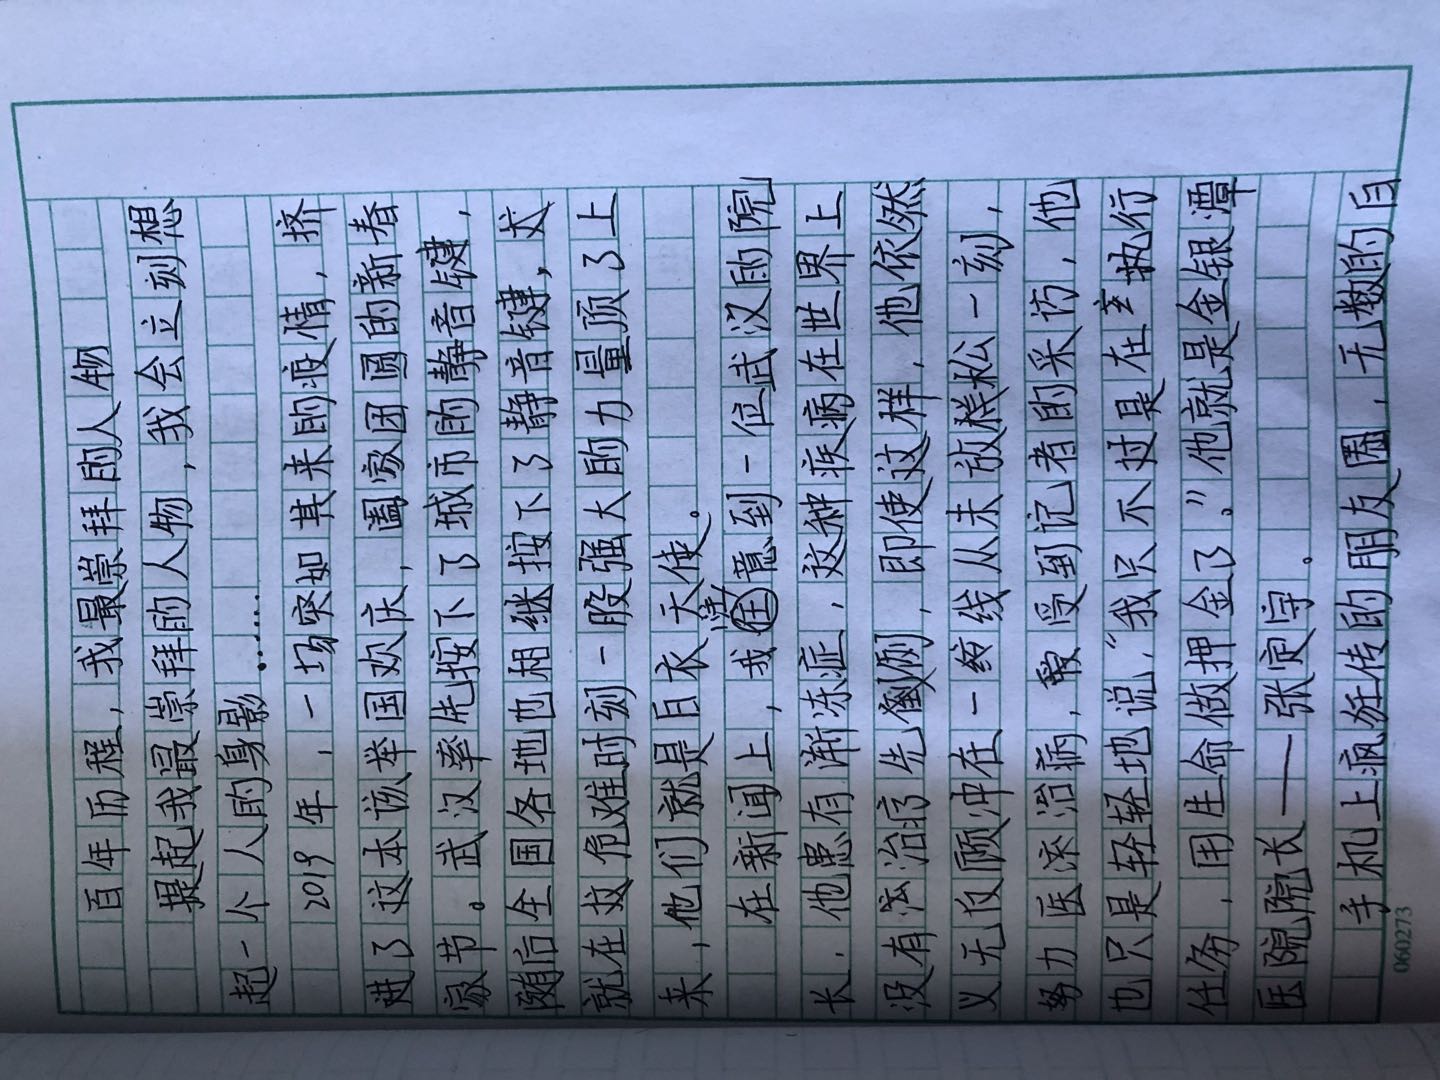 百年历程，我最崇拜的人物
提起我最崇拜的人物，我会立刻想
起一个人的身影……
2019年，一场突如其来的疫情，挤
进了这本该举国欢庆，阖家团圆的新春
家节。武汉率先按下了城市的静音键，
随后全国各地也相继按下了静音键，
就在这危难时刻一股强大的力量顶了上
来，他们就是白衣天使。
在新闻上，我注意到一位武汉的院
长，他患有渐冻症，这种疾病在世界上
没有治疗先例，即使这样，他依然
义无反顾冲在一线从未放松一刻，
努力医治病，受到记者的采访，他
也只是轻轻地说，“我只不过是在执行
任务，用生命做押金了。”他就是金银潭
医院院长——张定宇。
手机上疯狂传的朋友圈，无数的白
060273